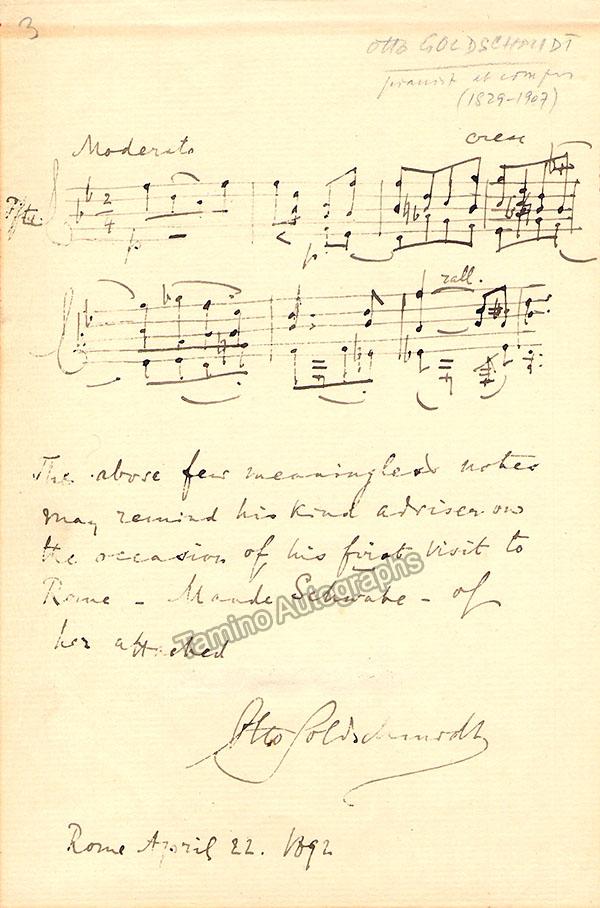 3
Otto GOLDSCHMIDT
pianist et compos
(1829-1907)
Moderato
cresc
Pfte
2
4
p
p
rall.
The above few meaningless notes
may remind his kind adviser on
the occasion of his first visit to
Rome - Maude Schwabe - of
her attached
Otto Goldschmidt
Rome April 22. 1892
Tamino Autographs